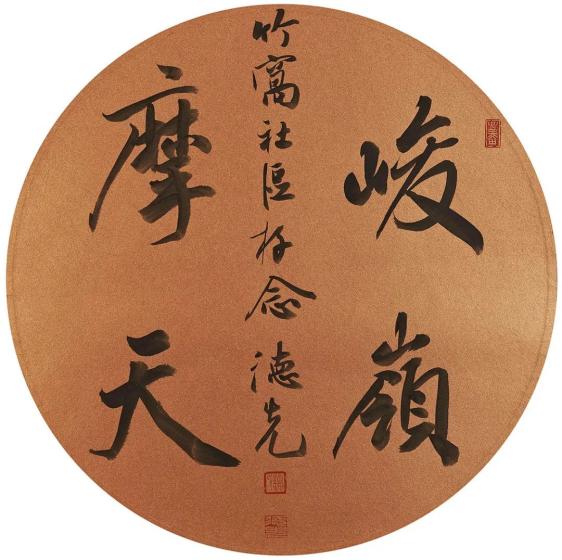 峻嶺
摩天
竹窩社區存念 德先